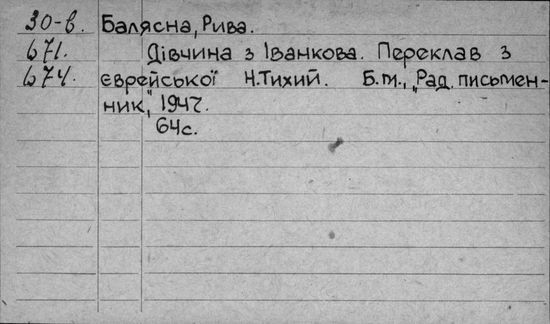 30-в. Балясна, Рива.
671. Дівчина з Іванкова. Переклав з
674. єврейської Н.Тихий. Б.м., „Рад. письмен-
ник," 1947.
64с.